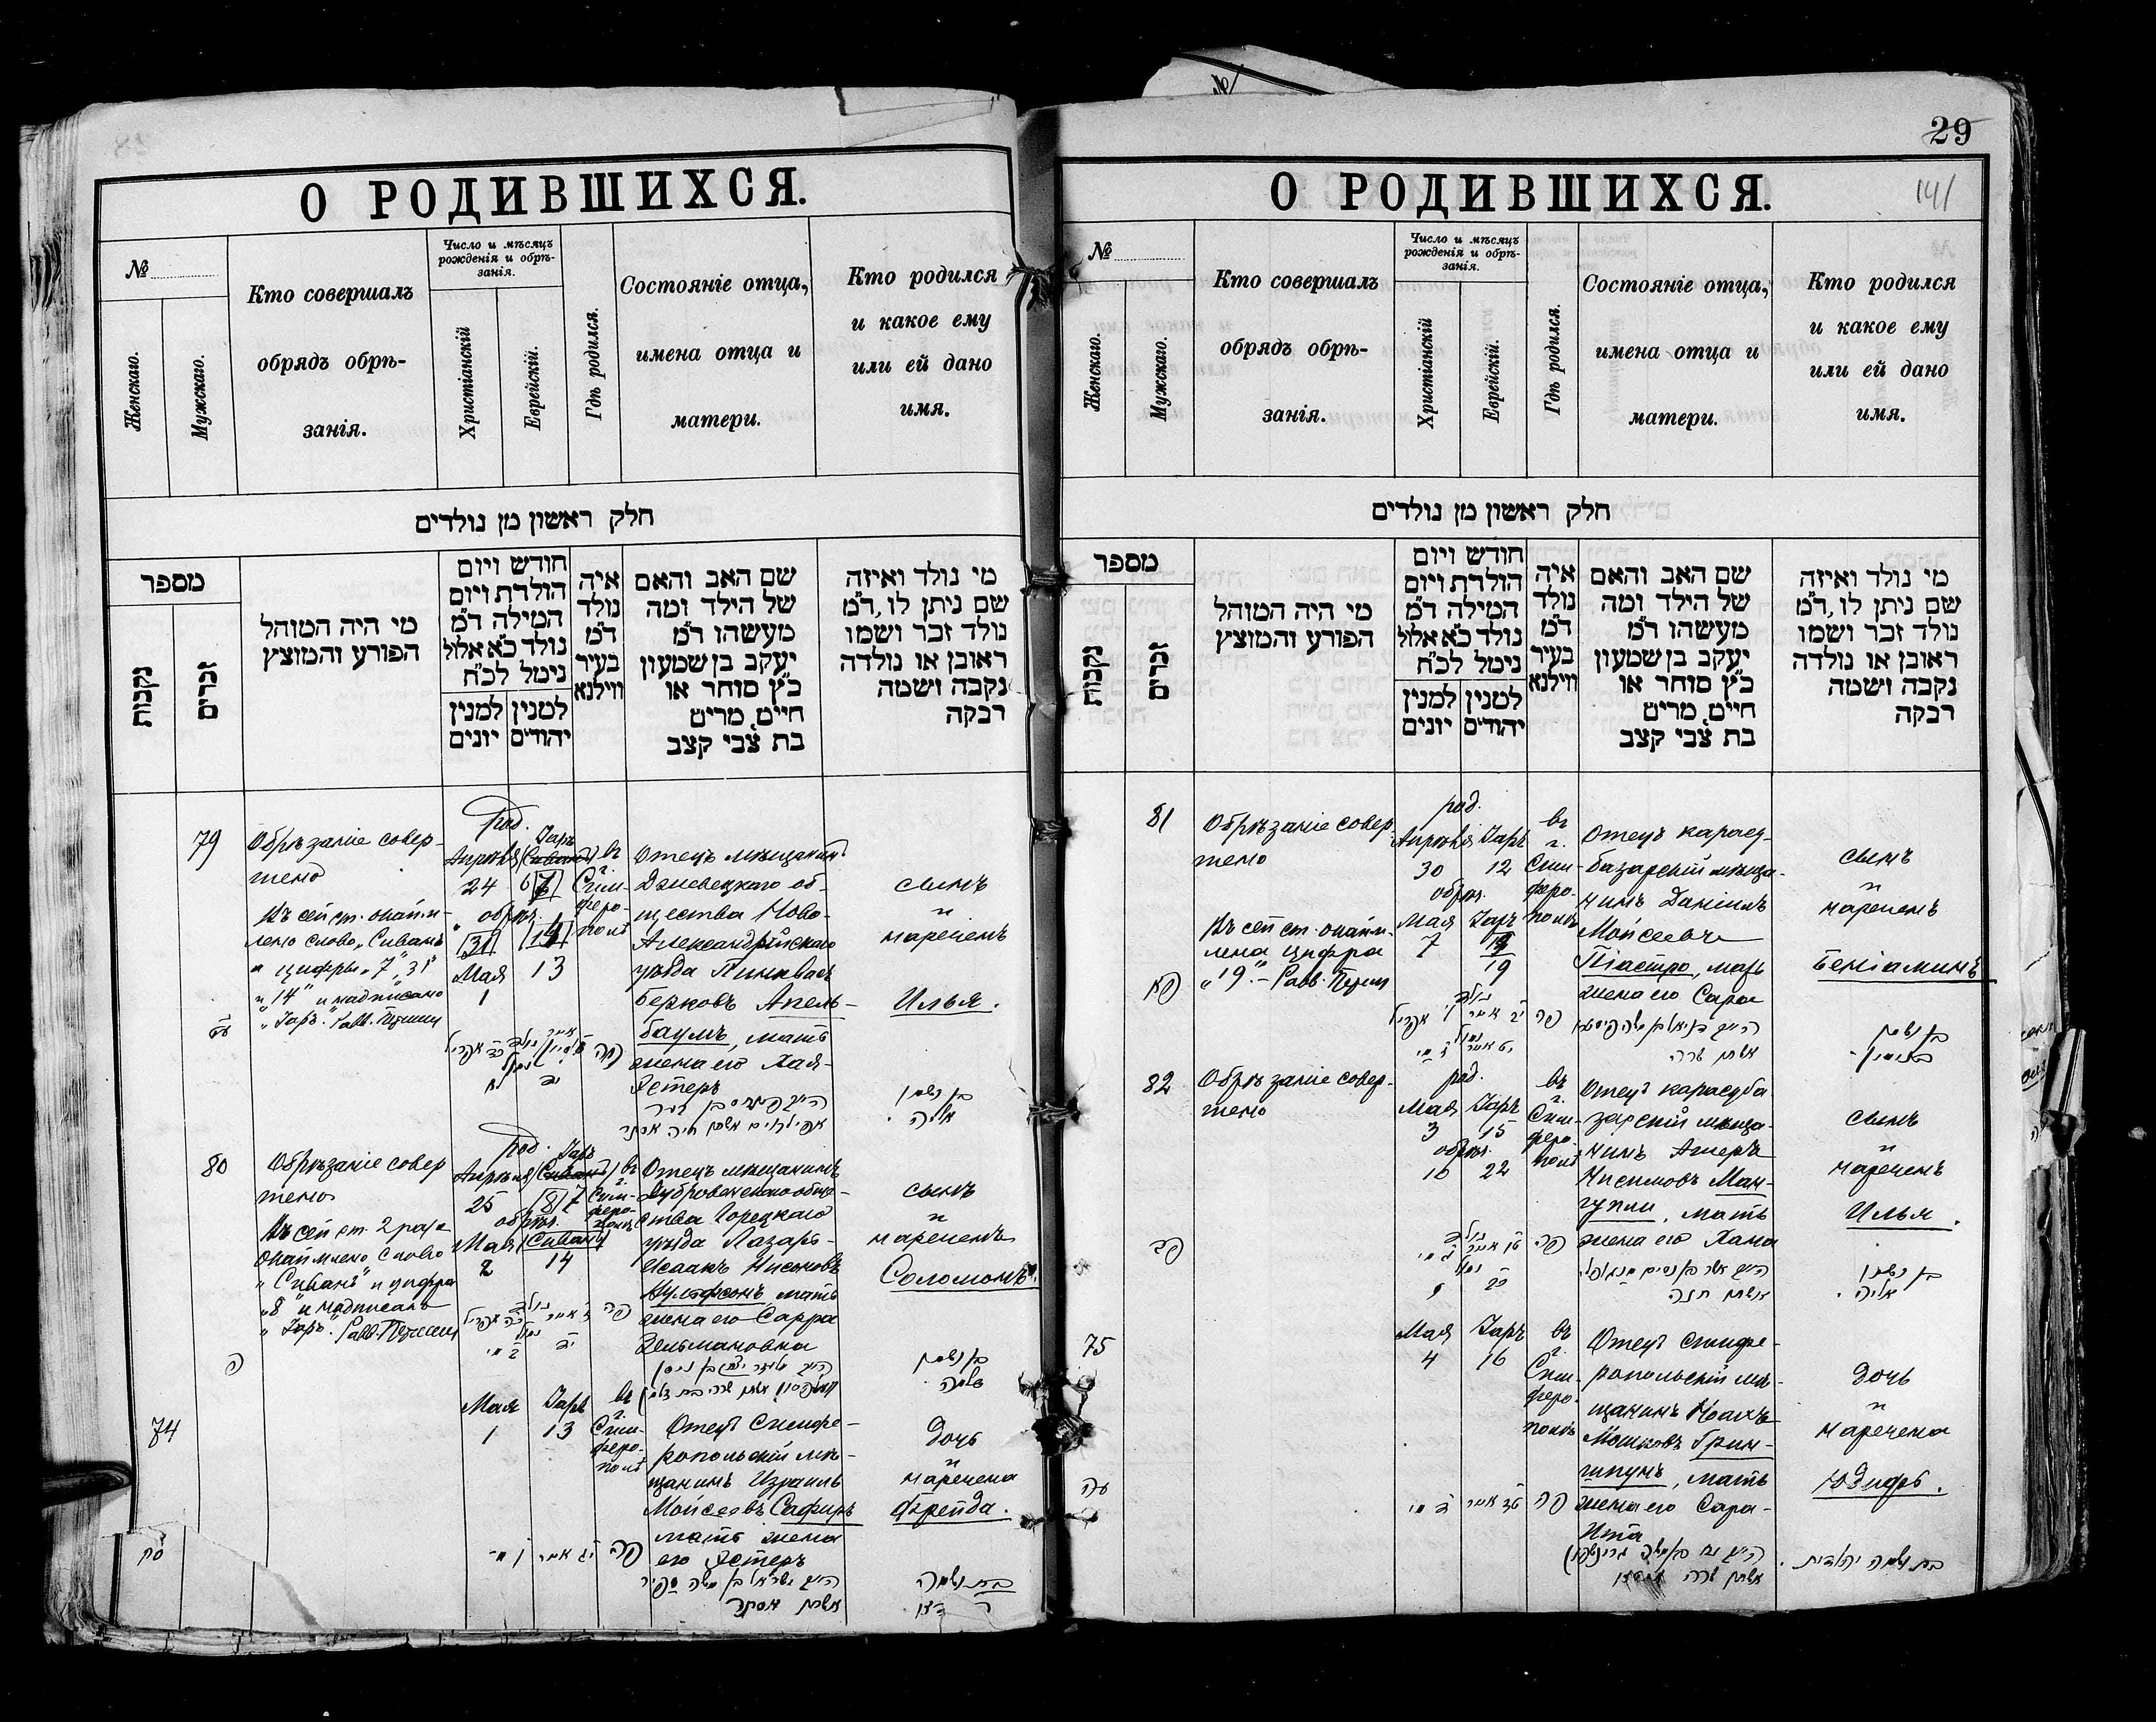 О РОДИВШИХСЯ.
№
Женскаго.
Мужскаго.
Кто совершалъ
обрядъ обрѣ-
занія.
Число и мѣсяцъ
рожденія и обрѣ-
занія.
Христіанскій
Еврейскій.
Гдѣ родился.
Состояніе отца,
имена отца и
матери.
Кто родился
и какое ему
или ей дано
имя.
חלק ראשון מן נולדים
מספר
נקבות
זכרים
מי היה המוהל
הפורע והמוצץ
חודש ויום
הולדת ויום
המילה ד״מ
נולד כ״א אלול
נימל לכ״ח
למנין יהודים
למנין יונים
איה
נולד
ד״מ
בעיר
ווילנא
שם האב והאם
של הילד ומה
מעשהו ד״מ
יעקב בן שמעון
כ״ץ סוחר או
חיים, מרים
בת צבי קצב
מי נולד ואיזה
שם ניתן לו, ד״מ
נולד זכר ושמו
ראובן או נולדה
נקבה ושמה
רבקה
79
Обрѣзаніе совер-
шено
Въ сей ст. опайм-
лено слово „Сиванъ"
и цифры „7", 31"
и „14" и надписано
„Іаръ".
род.
Іаръ
Апрѣля (Сиванъ)
24 6 7
обрѣз.
31 14
Мая 13
1
въ
г.
Сим-
феро-
полѣ
Отецъ мѣщанинъ
об-
щества Ново-
Александрійскаго
уѣзда Пинквасъ
Берковъ Апель-
баумъ, мать
жена его Хая-
Эстеръ
сынъ
и
нареченъ
Илья.
בן ושמו
אליה
80
Обрѣзаніе совер
шено
Въ сей ст. 2 раза
опаймлено слово
„Сиванъ" и цифра
„8" и надписанъ
„Іаръ".
род. Іаръ
Апрѣля (Сиванъ)
25 8 7
обрѣз.
Мая (Сиванъ)
2 14
въ
г.
Сим-
феро-
полѣ
Отецъ мѣщанинъ
Дубровенскаго обще-
ства Горецкаго
уѣзда Лазарь-
Исаакъ Нисоновъ
Вульфсонъ, мать
жена его Сарра
Зельмановна
сынъ
и
нареченъ
Соломонъ.
בן ושמו
שלמה
74
Мая Іаръ
1 13
въ
г.
Сим-
феро-
полѣ
Отецъ Симфе-
ропольскій мѣ-
щанинъ Израиль
Мойсеевъ Сафиръ
мать жена
его Эстеръ
дочь
и
наречена
Фрейда.
בת ושמה
29
141
О РОДИВШИХСЯ.
№
Женскаго.
Мужскаго.
Кто совершалъ
обрядъ обрѣ-
занія.
Число и мѣсяцъ
рожденія и обрѣ-
занія.
Христіанскій
Еврейскій.
Гдѣ родился.
Состояніе отца,
имена отца и
матери.
Кто родился
и какое ему
или ей дано
имя.
חלק ראשון מן נולדים
מספר
נקבות
זכרים
מי היה המוהל
הפורע והמוצץ
חודש ויום
הולדת ויום
המילה ד״מ
נולד כ״א אלול
נימל לכ״ח
למנין יהודים
למנין יונים
איה
נולד
ד״מ
בעיר
ווילנא
שם האב והאם
של הילד ומה
מעשהו ד״מ
יעקב בן שמעון
כ״ץ סוחר או
חיים, מרים
בת צבי קצב
מי נולד ואיזה
שם ניתן לו, ד״מ
נולד זכר ושמו
ראובן או נולדה
נקבה ושמה
רבקה
81
Обрѣзаніе совер-
шено
Въ сей ст. опайм-
лена цифра
„19".
род.
Апрѣля Іаръ
30 12
обрѣз.
Мая Іаръ
7 19
въ
г.
Сим-
феро-
полѣ
Отецъ карасу-
базарскій мѣща-
нинъ Даніилъ
Мойсеевъ
Піастро, мать
жена его Сара
сынъ
и
нареченъ
Беніаминъ
בן ושמו
בנימין
82
Обрѣзаніе совер-
шено
род.
Мая Іаръ
3 15
обрѣз.
10 22
въ
г.
Сим-
феро-
полѣ
Отецъ карасуба
зарскій мѣща-
нинъ Ашеръ
Нисимовъ Ман-
гупли, мать
жена его Хана
сынъ
и
нареченъ
Илья.
בן ושמו
אליה
75
Мая Іаръ
4 16
въ
г.
Сим-
феро-
полѣ
Отецъ Симфе-
ропольскій мѣ-
щанинъ Ноахъ
Мошковъ Грин-
шпунъ, мать
жена его Сара-
Ита
дочь
и
наречена
Юдифь.
בת ושמה יהודית